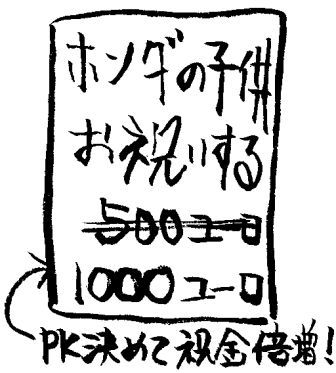 ホンダの子供
お祝いする
500ユーロ
1000ユーロ
PK決めて祝金倍増!